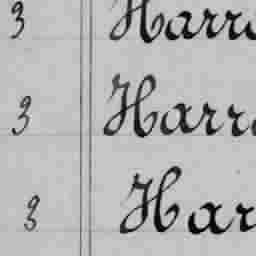 3 Harr
3 Harr
3 Har